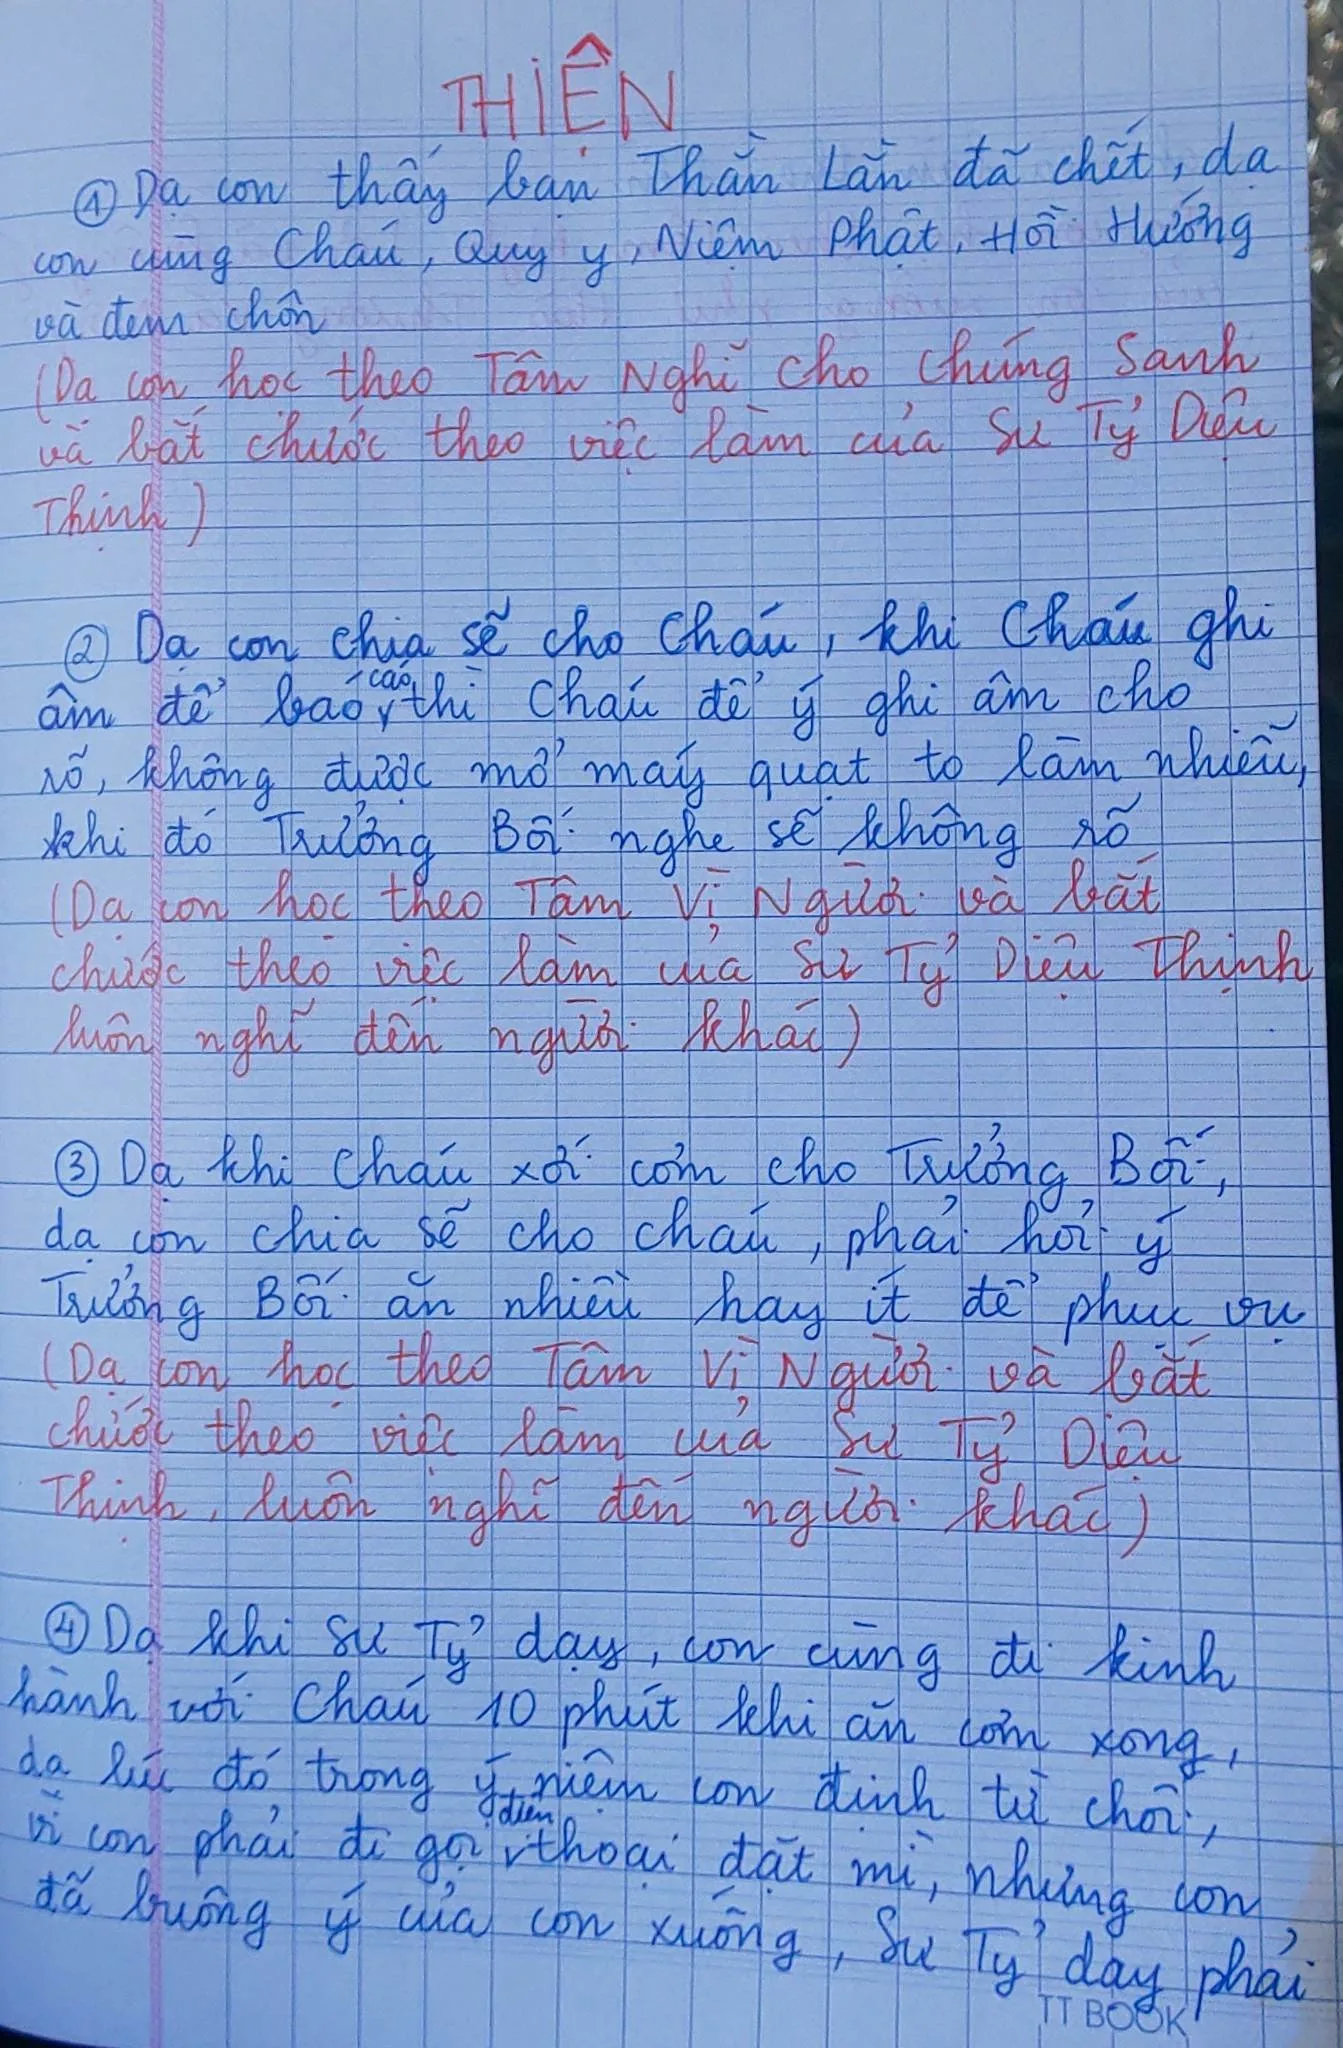 THIỆN
① Dạ con thấy bạn Thằn Lằn đã chết, dạ
con cùng Cháu, Quy y, Niệm Phật, Hồi Hướng
và đem chôn
(Dạ con học theo Tâm Nghĩ cho Chúng Sanh
và bắt chước theo việc làm của Sư Tỷ Diệu
Thịnh)
② Dạ con chia sẽ cho Cháu, khi Cháu ghi
âm để báo cáo thì Cháu để ý ghi âm cho
rõ, không được mở máy quạt to làm nhiễu,
khi đó Trưởng Bối nghe sẽ không rõ
(Dạ con học theo Tâm Vì Người và bắt
chước theo việc làm của Sư Tỷ Diệu Thịnh
luôn nghĩ đến người khác)
③ Dạ khi Cháu xới cơm cho Trưởng Bối,
dạ con chia sẽ cho cháu, phải hỏi ý
Trưởng Bối ăn nhiều hay ít để phục vụ
(Dạ con học theo Tâm Vì Người và bắt
chước theo việc làm của Sư Tỷ Diệu
Thịnh, luôn nghĩ đến người khác)
④ Dạ khi Sư Tỷ dạy, con cùng đi kinh
hành với Cháu 10 phút khi ăn cơm xong,
dạ lúc đó trong ý niệm con định từ chối,
vì con phải đi gọi điện thoại đặt mì, nhưng con
đã buông ý của con xuống, Sư Tỷ dạy phải
TT BOOK